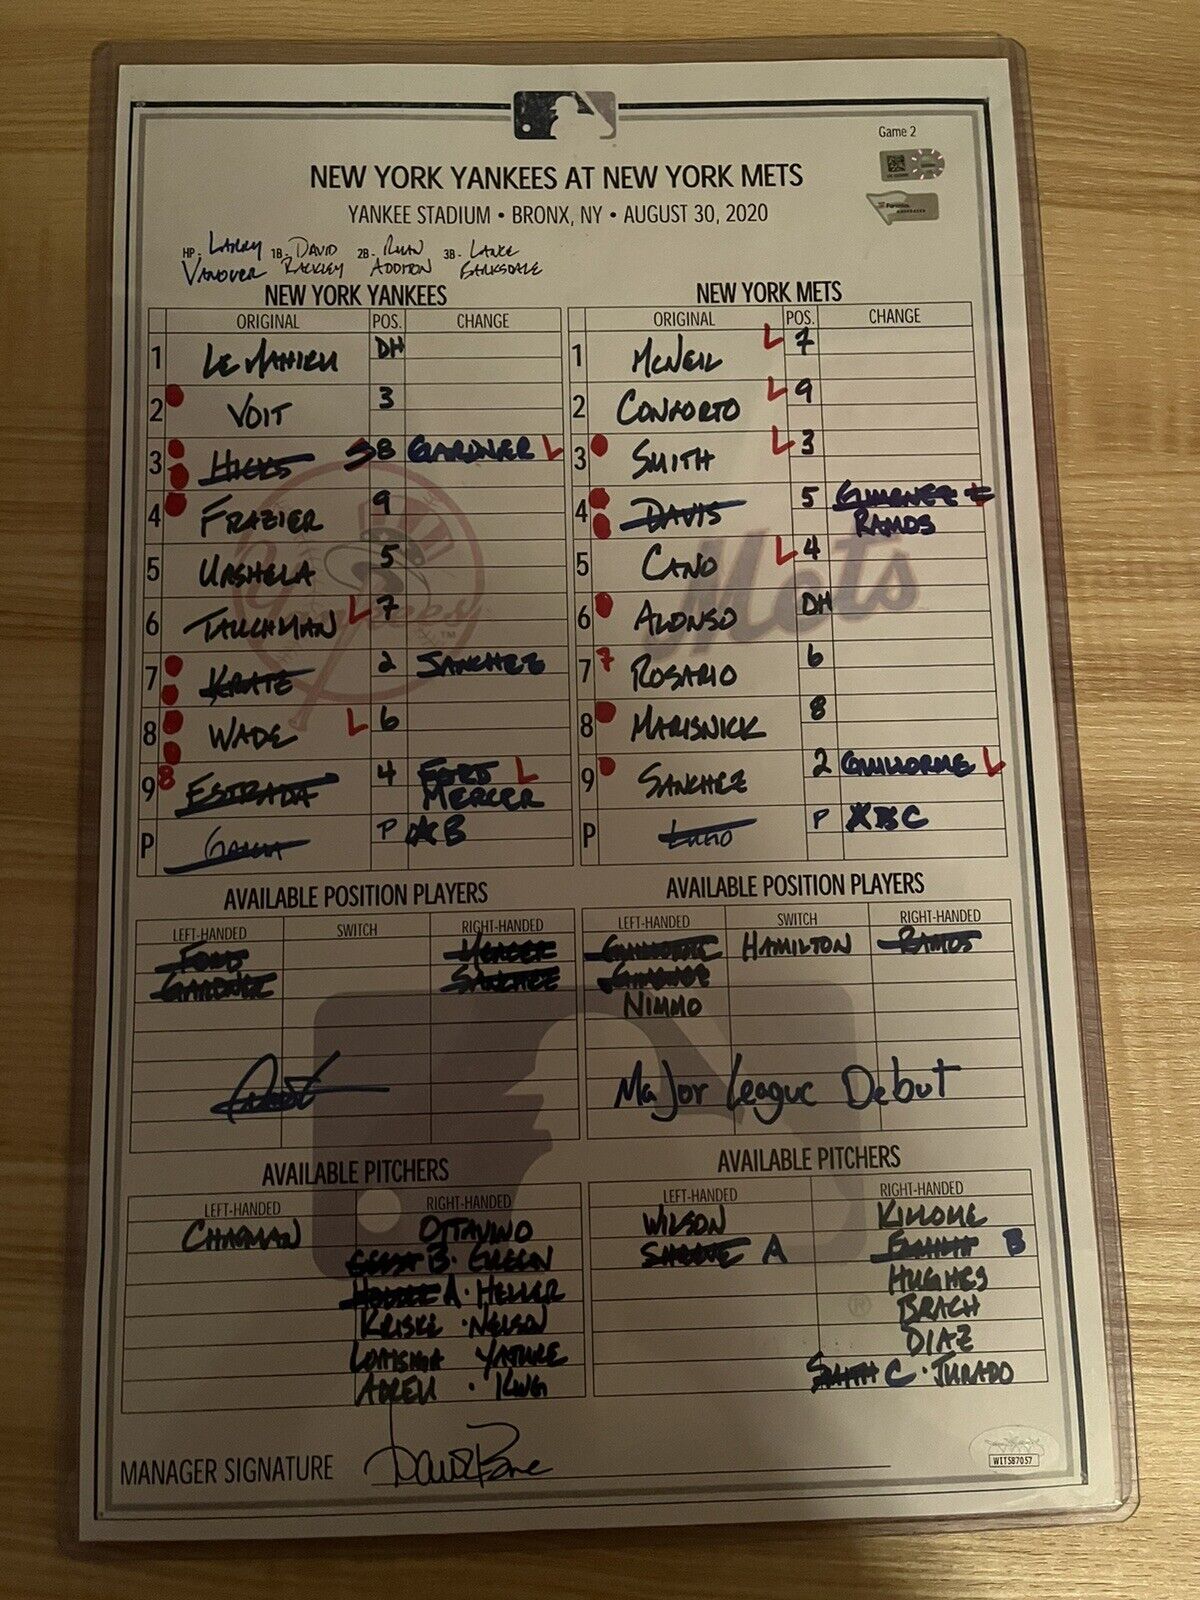 Game 2
NEW YORK YANKEES AT NEW YORK METS
YANKEE STADIUM • BRONX, NY • AUGUST 30, 2020
HP- LARRY VANOVER 1B- DAVID RACKLEY 2B- RYAN ADDITON 3B- LANCE BARKSDALE
NEW YORK YANKEES
ORIGINAL POS. CHANGE
1 LEMAHIEU DH
2 VOIT 3
3 HICKS S 8 GARDNER L
4 FRAZIER 9
5 URSHELA 5
6 TAUCHMAN L 7
7 KRATZ 2 SANCHEZ
8 WADE L 6
9 8 ESTRADA 4 FORD L
MERCER
P GARCIA P A B
NEW YORK METS
ORIGINAL POS. CHANGE
1 MCNEIL L 7
2 CONFORTO L 9
3 SMITH L 3
4 DAVIS 5 GIMENEZ L
RAMOS
5 CANO L 4
6 ALONSO DH
7 7 ROSARIO 6
8 MARISNICK 8
9 SANCHEZ 2 GUILLORME L
P LUGO P A B C
AVAILABLE POSITION PLAYERS
LEFT-HANDED SWITCH RIGHT-HANDED
FORD MERCER
GARDNER SANCHEZ
AVAILABLE POSITION PLAYERS
LEFT-HANDED SWITCH RIGHT-HANDED
GUILLORME HAMILTON RAMOS
GIMENEZ
NIMMO
Major League Debut
AVAILABLE PITCHERS
LEFT-HANDED RIGHT-HANDED
CHAPMAN OTTAVINO
B • GREEN
HOLDER A • HELLER
KRISKE • NELSON
LOAISIGA YAJURE
ABREU • KING
AVAILABLE PITCHERS
LEFT-HANDED RIGHT-HANDED
WILSON KILLOME
SHREVE A FAMILIA B
HUGHES
BRACH
DIAZ
SMITH C • JURADO
MANAGER SIGNATURE
Yankees
TM
Mets
®
WIT587057